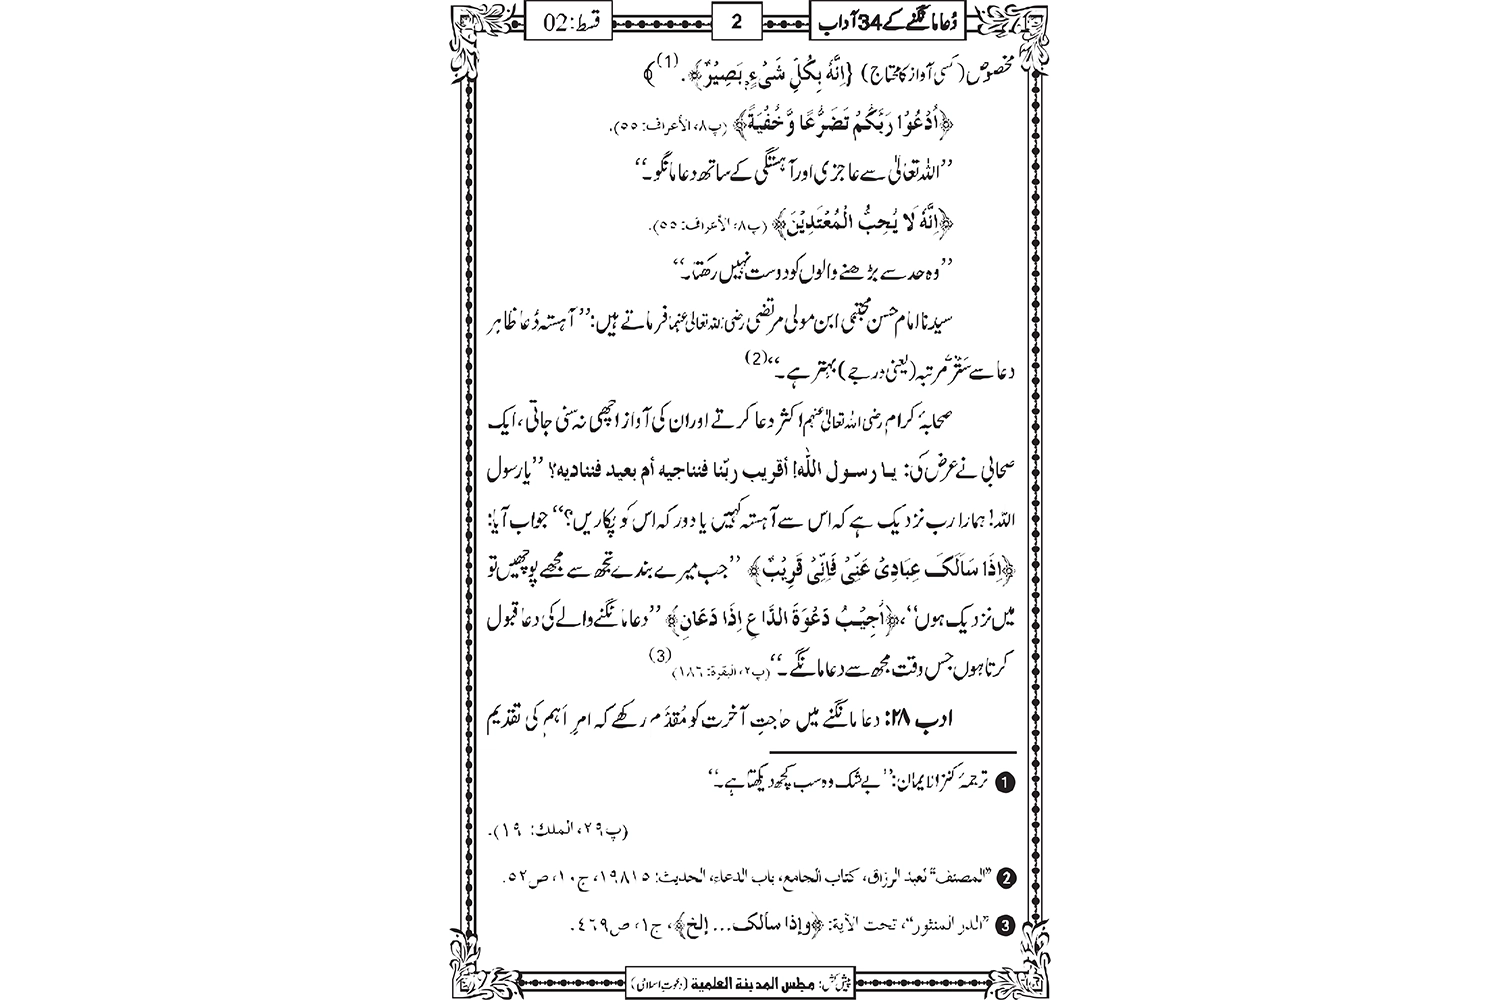 دُعا مانگنے کے 34 آداب
2
قسط: 02
مخصوص (کسی آواز کا محتاج) {اِنَّهٗ بِكُلِّ شَیْءٍۭ بَصِیْرٌ﴾. (1)﴾
﴿اُدْعُوْا رَبَّكُمْ تَضَرُّعًا وَّ خُفْیَةً﴾ (پ۸، الأعراف: ۵۵).
’’اللہ تعالیٰ سے عاجزی اور آہستگی کے ساتھ دعا مانگو۔‘‘
﴿اِنَّهٗ لَا یُحِبُّ الْمُعْتَدِیْنَ﴾ (پ۸، الأعراف: ۵۵).
’’وہ حد سے بڑھنے والوں کو دوست نہیں رکھتا۔‘‘
سیدنا امام حسن مجتبیٰ ابن مولیٰ مرتضی رضی اللہ تعالیٰ عنہما فرماتے ہیں: ’’آہستہ دُعا ظاہر
دعا سے ستّر مرتبہ (یعنی درجے) بہتر ہے۔‘‘(2)
صحابۂ کرام رضی اللہ تعالیٰ عنہم اکثر دعا کرتے اور ان کی آواز اچھی نہ سنی جاتی، ایک
صحابی نے عرض کی: یا رسول اللّٰہ! أقریب ربّنا فنناجیه أم بعید فننادیه؟ ’’یا رسول
اللہ! ہمارا رب نزدیک ہے کہ اس سے آہستہ کہیں یا دور کہ اس کو پکاریں؟‘‘ جواب آیا:
﴿اِذَا سَاَلَكَ عِبَادِیْ عَنِّیْ فَاِنِّیْ قَرِیْبٌ﴾ ’’جب میرے بندے تجھ سے مجھے پوچھیں تو
میں نزدیک ہوں‘‘، ﴿اُجِیْبُ دَعْوَةَ الدَّاعِ اِذَا دَعَانِ﴾ ’’دعا مانگنے والے کی دعا قبول
کرتا ہوں جس وقت مجھ سے دعا مانگے۔‘‘ (پ۲، البقرة: ۱۸٦) (3)
ادب ۲۸: دعا مانگنے میں حاجتِ آخرت کو مُقدَّم رکھے کہ امرِ اَہم کی تقدیم
1 ترجمۂ کنز الایمان: ’’بے شک وہ سب کچھ دیکھتا ہے۔‘‘
(پ۲۹، الملك: ۱۹).
2 ’’المصنف‘‘ لعبد الرزاق، كتاب الجامع، باب الدعاء، الحديث: ۱۹۸۱۵، ج۱۰، ص۵۲.
3 ’’الدر المنثور‘‘، تحت الآية: ﴿وإذا سألك... إلخ﴾، ج۱، ص٤٦۹.
پیش کش: مجلس المدينة العلمية (دعوتِ اسلامی)